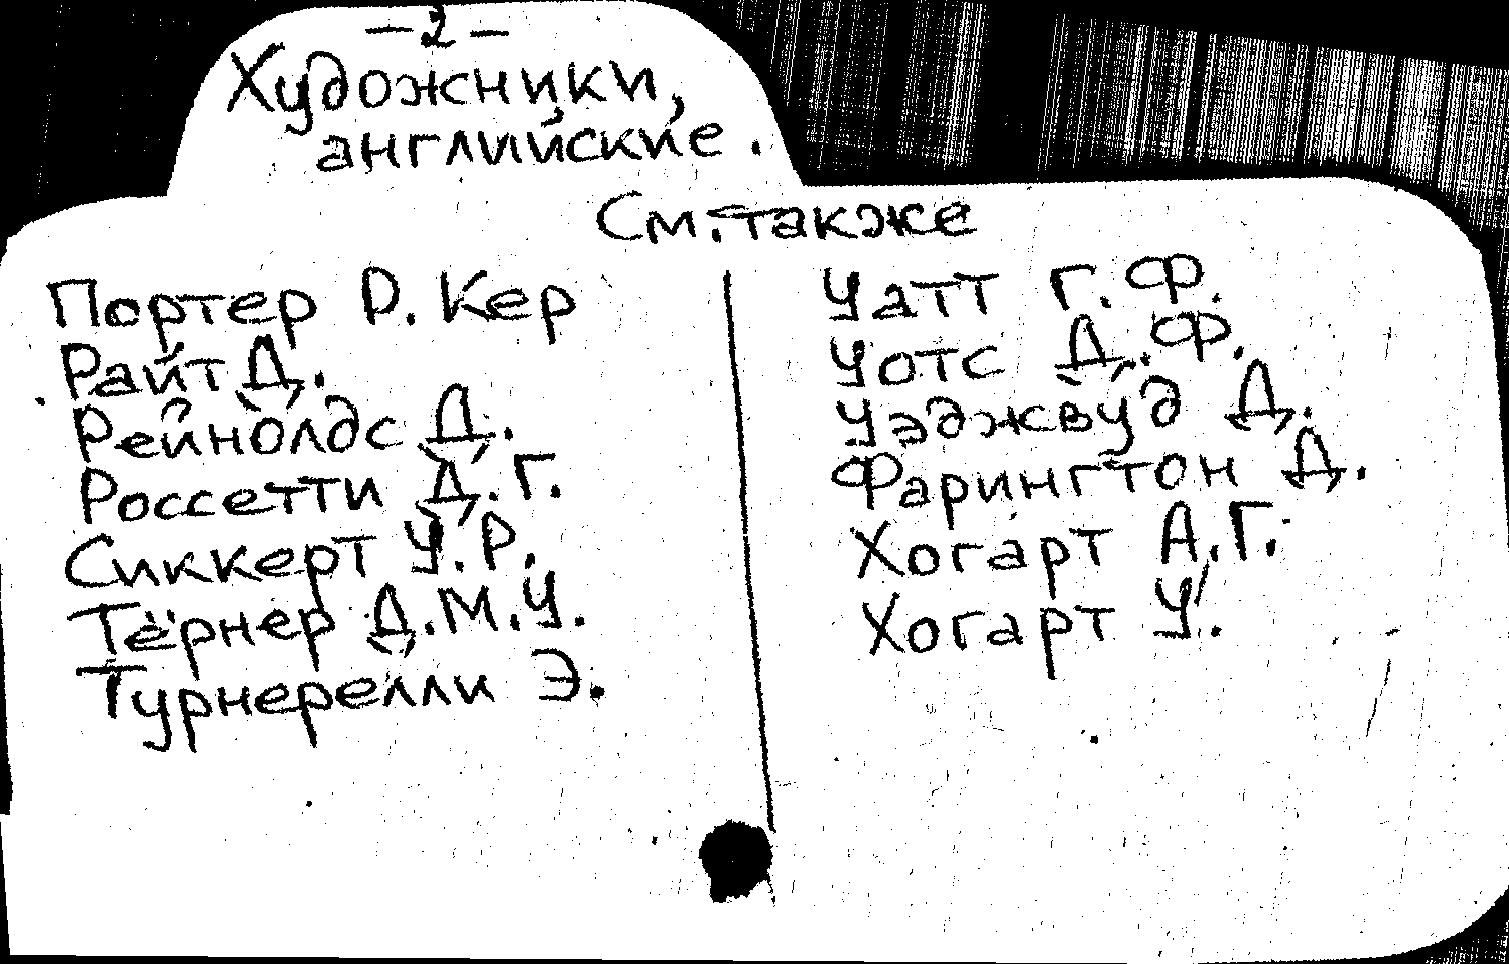 — 2 —
Художники,
английские.
См. также
Портер Р. Кер
Райт Д.
Рейнолдс Д.
Россетти Д. Г.
Сиккерт У. Р.
Тёрнер Д. М. У.
Турнерелли Э.
Уатт Г. Ф.
Уотс Д. Ф.
Уэджвуд Д.
Фарингтон Д.
Хогарт А. Г.
Хогарт У.